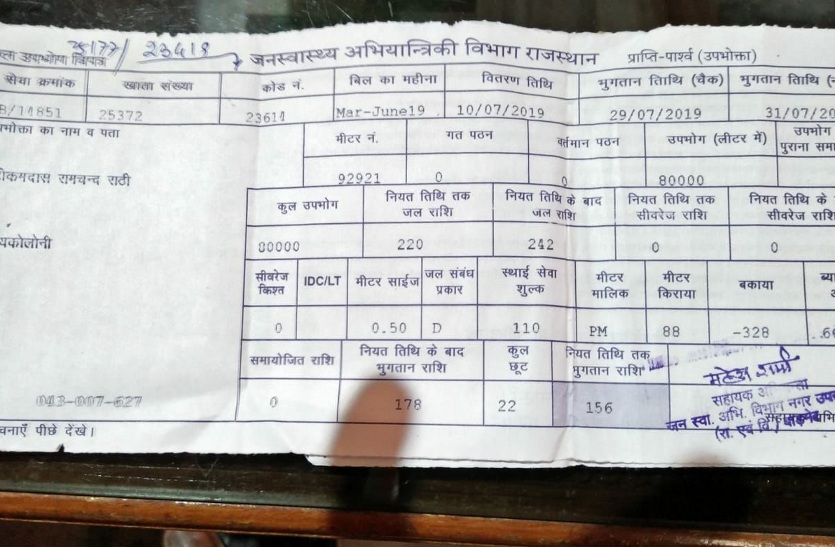 25177/ 23418
जनस्वास्थ्य अभियान्त्रिकी विभाग राजस्थान प्राप्ति-पार्श्व (उपभोक्ता)
सेवा क्रमांक खाता संख्या कोड नं. बिल का महीना वितरण तिथि भुगतान तिाथि (चैक) भुगतान तिाथि
/14851 25372 23611 Mar-June19 10/07/2019 29/07/2019 31/07/20
का नाम व पता मीटर नं. गत पठन वर्तमान पठन उपभोग (लीटर में) उपभोग
पुराना
रामचन्द राठी 92921 0 0 80000
कुल उपभोग नियत तिथि तक जल राशि नियत तिथि के बाद जल राशि नियत तिथि तक सीवरेज राशि नियत तिथि के सीवरेज राशि
80000 220 242 0 0
सीवरेज किश्त IDC/LT मीटर साईज जल संबंध प्रकार स्थाई सेवा शुल्क मीटर मालिक मीटर किराया बकाया
0 0.50 D 110 PM 88 -328
समायोजित राशि नियत तिथि के बाद भुगतान राशि कुल छूट नियत तिथि तक भुगतान राशि
043-007-627 0 178 22 156
सहायक
जन स्वा. अभि. विभाग नगर
पीछे देखे।